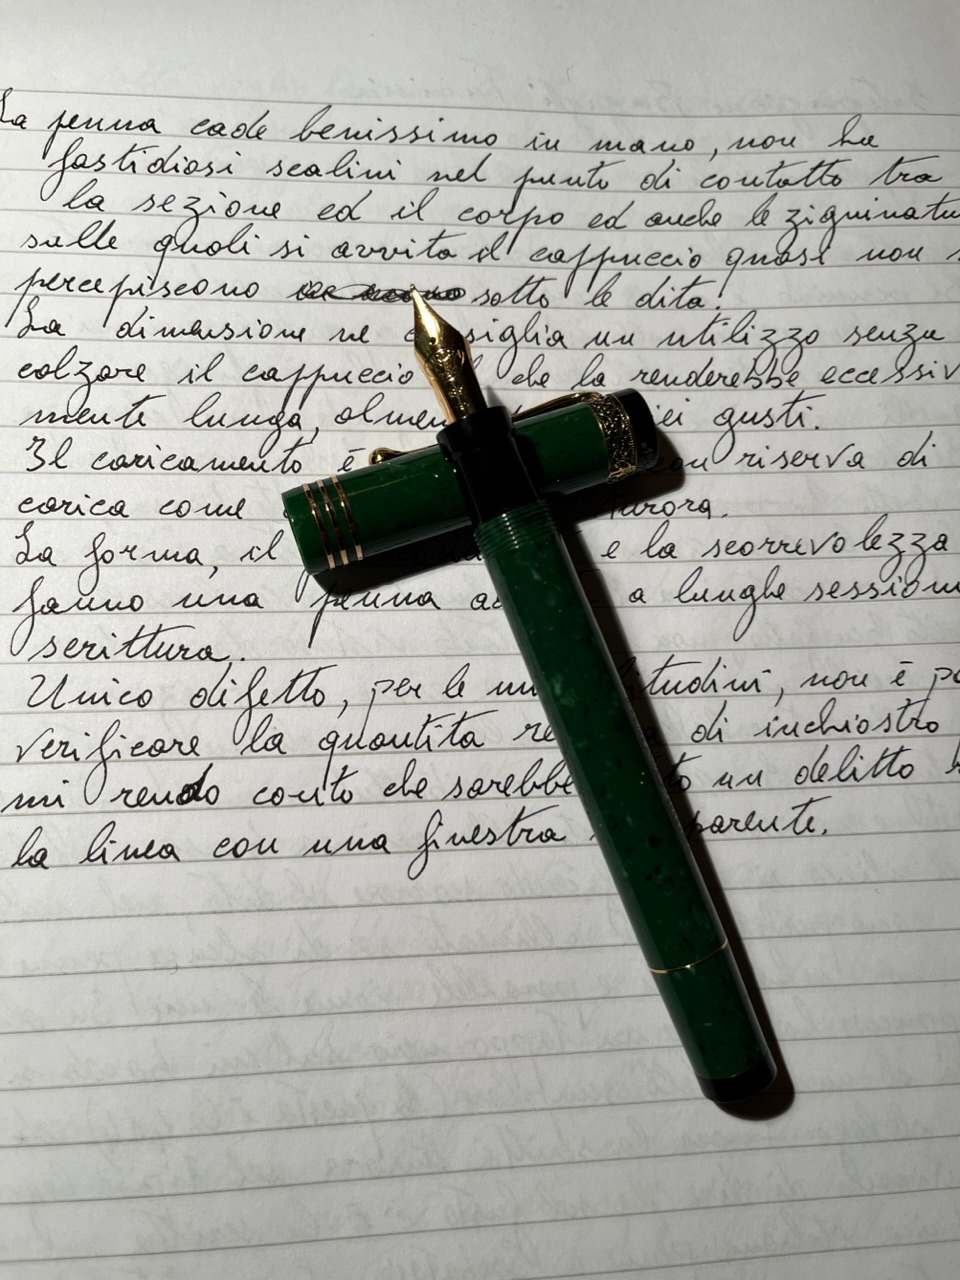 La penna cade benissimo in mano, non ha
fastidiosi scalini nel punto di contatto tra
la sezione ed il corpo ed anche le ziguinatu
sulle quali si avvita il cappuccio quasi non s
percepiscono sotto le dita.
La dimensione ne c siglia un utilizzo senza
calzare il cappuccio che la renderebbe eccessiv
mente lunga, almen iei gusti.
Il caricamento è con riserva di
carica come Aurora.
La forma, il e la scorrevolezza
fanno una penna a a lunghe sessioni
scrittura.
Unico difetto, per le mi itudini, non è po
verificare la quantita re a di inchiostro
mi rendo conto che sarebbe to un delitto
la linea con una finestra parente.